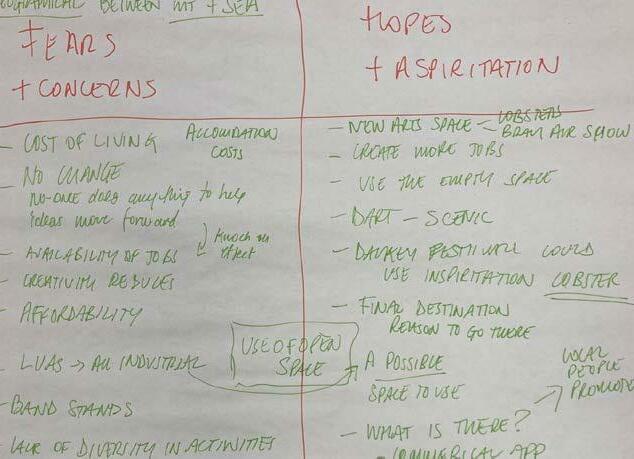 BETWEEN MT + SEA
FEARS
+ CONCERNS
- COST OF LIVING ACCOMODATION
COSTS
- NO CHANGE
NO-ONE does anything to help
ideas move forward
Knock on
effect
- AVAILABILITY OF JOBS
- CREATIVITY REDUCES
- AFFORDABILITY
- LUAS → All INDUSTRIAL
- BAND STANDS
- LACK OF DIVERSITY IN ACTIVITIES
USE OF OPEN
SPACE
HOPES
+ ASPIRITATION
- NEW ARTS SPACE - LOBSTERS
BRAY AIR SHOW
- CREATE MORE JOBS
- USE THE EMPTY SPACE
- DART - SCENIC
- DALKEY FESTIVAL COULD
USE INSPIRITATION LOBSTER
- FINAL DESTINATION
REASON TO GO THERE
A POSSIBLE
SPACE TO USE
LOCAL
PEOPLE
PROMOTE
- WHAT IS THERE?
- COMMERICAL APP